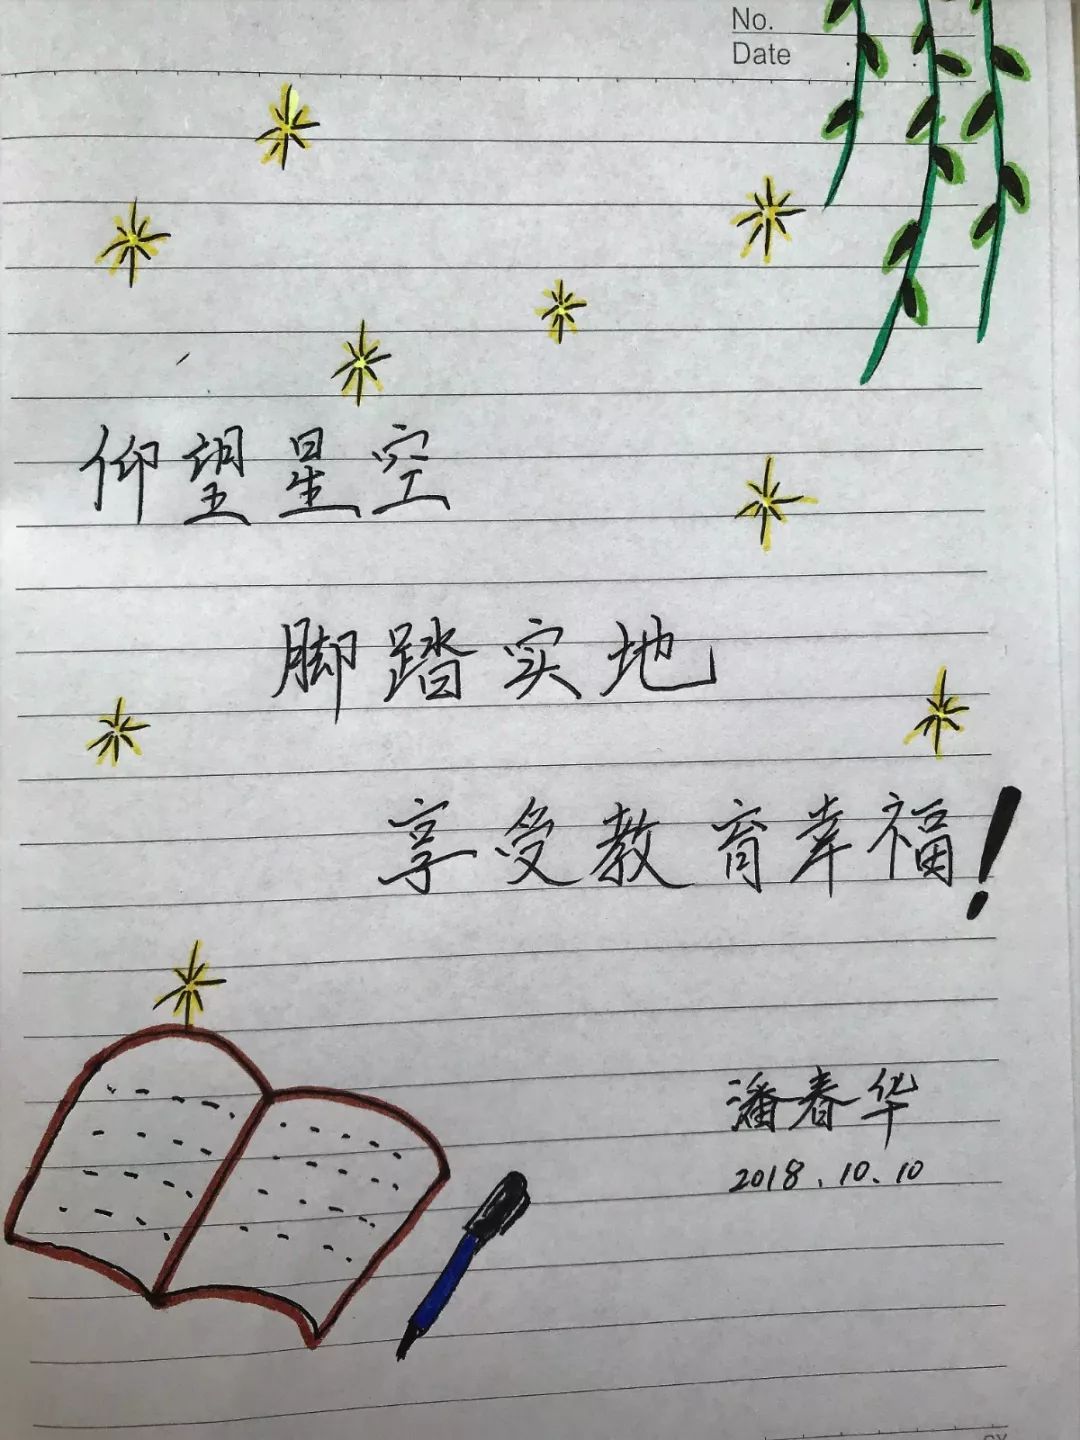 No.
Date
仰望星空
脚踏实地
享受教育幸福！
潘春华
2018.10.10